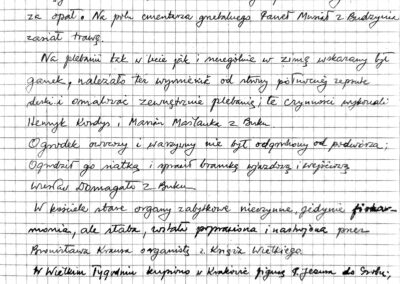 za opał. Na polu cmentarza grzebalnego Paweł Musiał z Budzynia
zasiał trawę.
Na plebanii tak w lecie jak i szczególnie w zimą wskazany był
ganek, należało też wymienić od strony północnej
deski i omalować zewnętrznie plebanię; te czynności wykonali
Henryk Kordys i Marian Maślanka z Buku.
Ogródek owocowy i warzywny nie był odgrodzony od podwórza;
Ogrodził go siatką i sprawił bramkę wjazdową i wejściową
Wiesław Domagała z Buku.
W kościele stare organy zabytkowe nieczynne, jedynie fishar-
monia, ale słaba, została poprawiona i nastrojona przez
Bronisława Krausa organistę z Książa Wielkiego.
W Wielkim Tygodniu kupiono w Krakowie figurę P. Jezusa do Grobu,